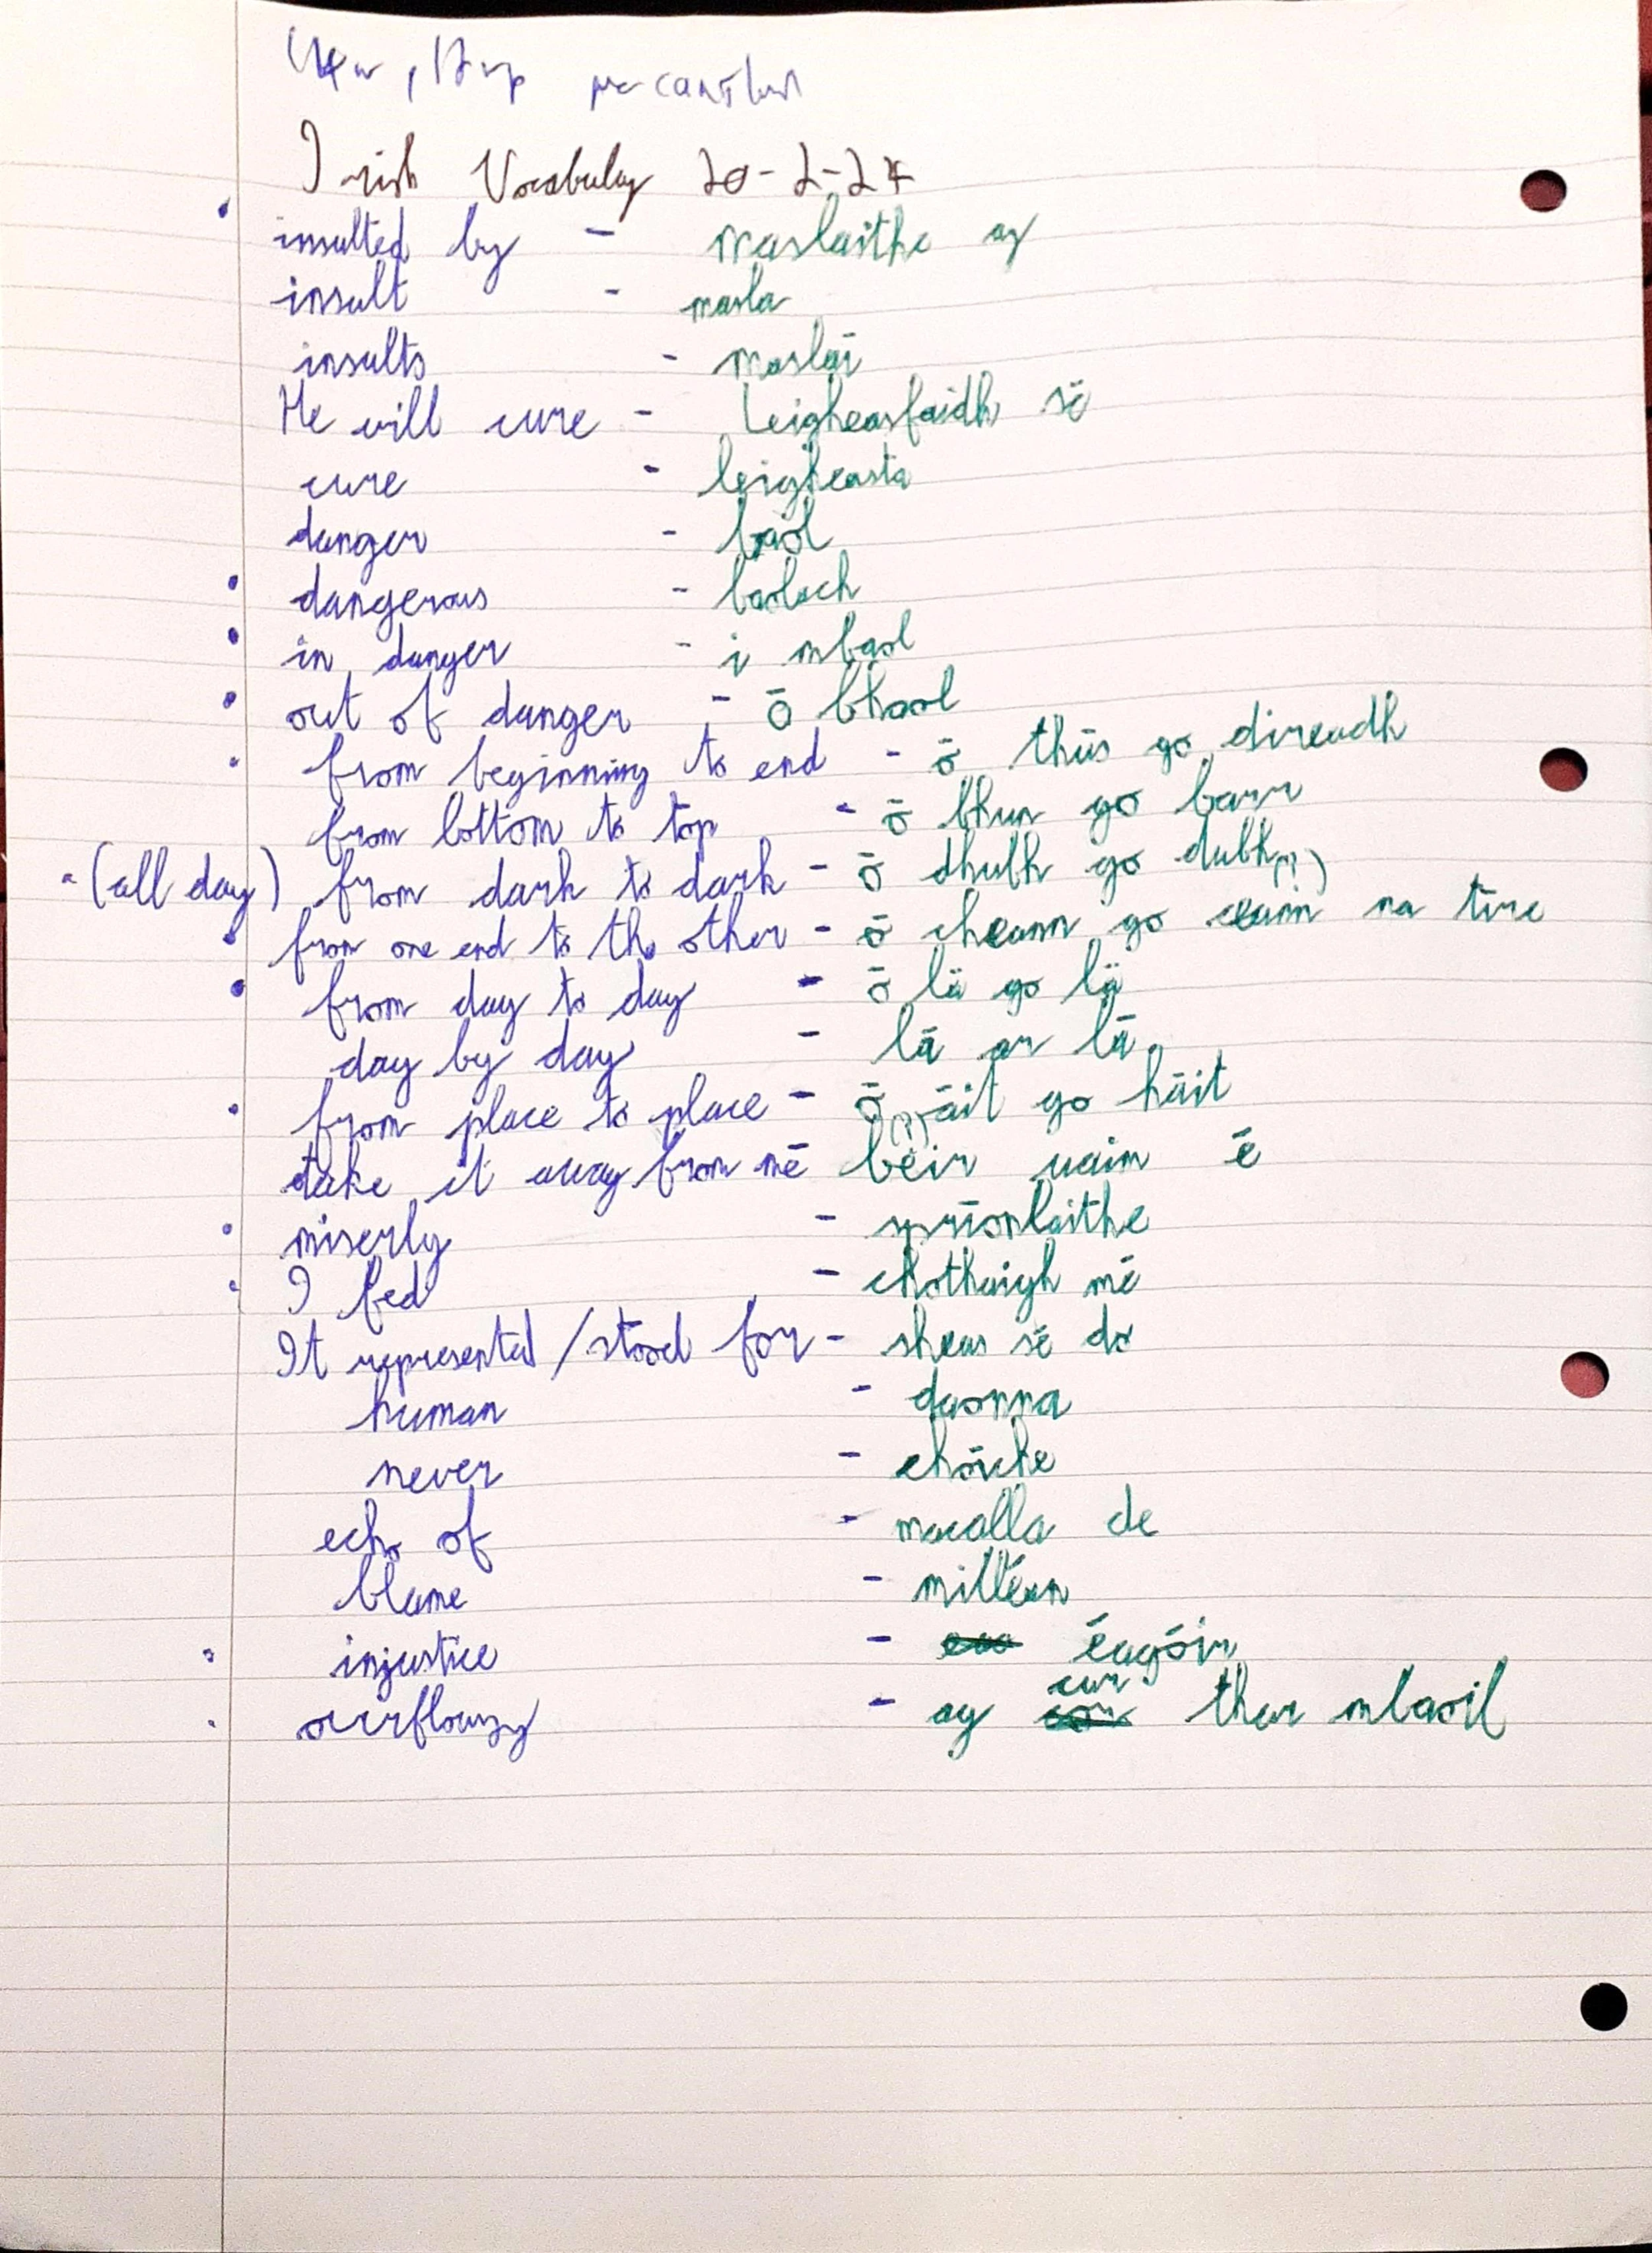 Irish Vocabulary 20-2-24
insulted by - maslaithe ag
insult - masla
insults - maslaí
He will cure - Leigheasfaidh sé
cure - leigheasta
danger - baol
dangerous - baolach
in danger - i mbaol
out of danger - ó bhaol
from beginning to end - ó thús go direadh
from bottom to top - ó bhun go barr
(all day) from dark to dark - ó dhubh go dubh
from one end to the other - ó cheann go ceann na tíre
from day to day - ó lá go lá
day by day - lá ar lá
from place to place - ó áit go háit
take it away from mé béir uaim é
miserly - spríonlaithe
I fed - chothaigh mé
It represented/stood for - sheas sé do
human - daonna
never - choíche
echo of - macalla de
blame - milleán
injustice - éagóir
overflowing - ag cur thar mbaoil